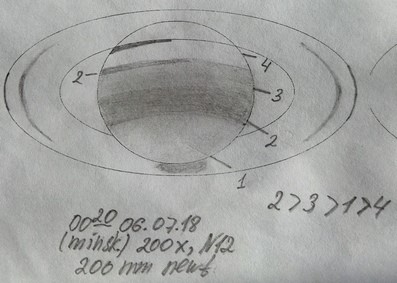 2
4
3
2
1
2>3>1>4
00 20 06.07.18
(minsk) 200x, N12
200 mm newt